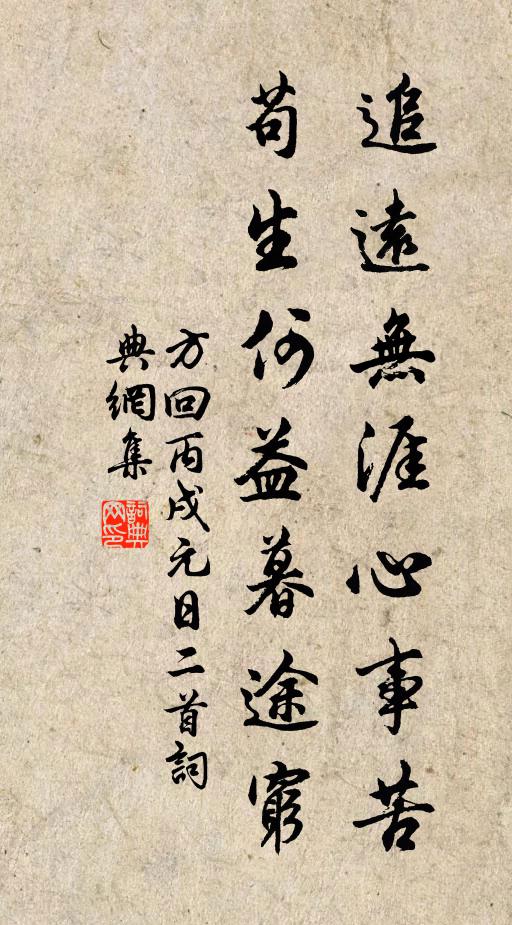 追遠無涯心事苦
苟生何益暮途窮
方回丙戌元日二首詞
典網集
詞典網印